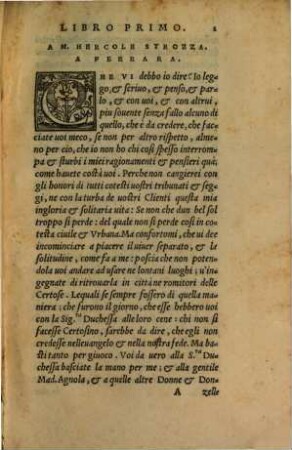 LIBRO PRIMO. 1
A M. HERCOLE STROZZA.
A FERRARA.
CHE VI debbo io dire? Io leg-
go, & scriuo, & penso, & par
lo, & con uoi, & con altrui,
piu souente senza fallo alcuno di
quello, che è da credere, che fac
ciate uoi meco, se non per altro rispetto, alme-
no per cio, che io non ho chi cosi spesso interrom
pa & sturbi i miei ragionamenti & pensieri qua;
come hauete costà uoi. Perche non cangierei con
gli honori di tutti cotesti uostri tribunati & seg
gi, ne con la turba de uostri Clienti questa mia
ingloria & solitaria uita: Se non che due bel sol
troppo si perde: del quale non si perde cosi in co
testa ciuile & Vrbana. Ma confortomi, che ui dee
incominciare a piacere il uiuer separato, & le
solitudine, come fa a me: poscia che non poten-
dola uoi andare ad usare ne lontani luoghi; u'inge
gnate di ritrouarla in cittàne romitori delle
Certose. Lequali se sempre fossero di quella ma
niera: che furono il giorno, che esse hebbero uoi
con la Sig.ra Duchessa alle loro cene: chi non si
facesse Certosino, sarebbe da dire, che egli non
credesse nelleuangelo & nella nostra fede. Ma ba
sti tanto per giuoco. Voi da uero alla S.ra Du
chessa basciate la mano per me; & alla gentile
Mad. Agnola, & a quelle altre Donne & Don-
A zelle